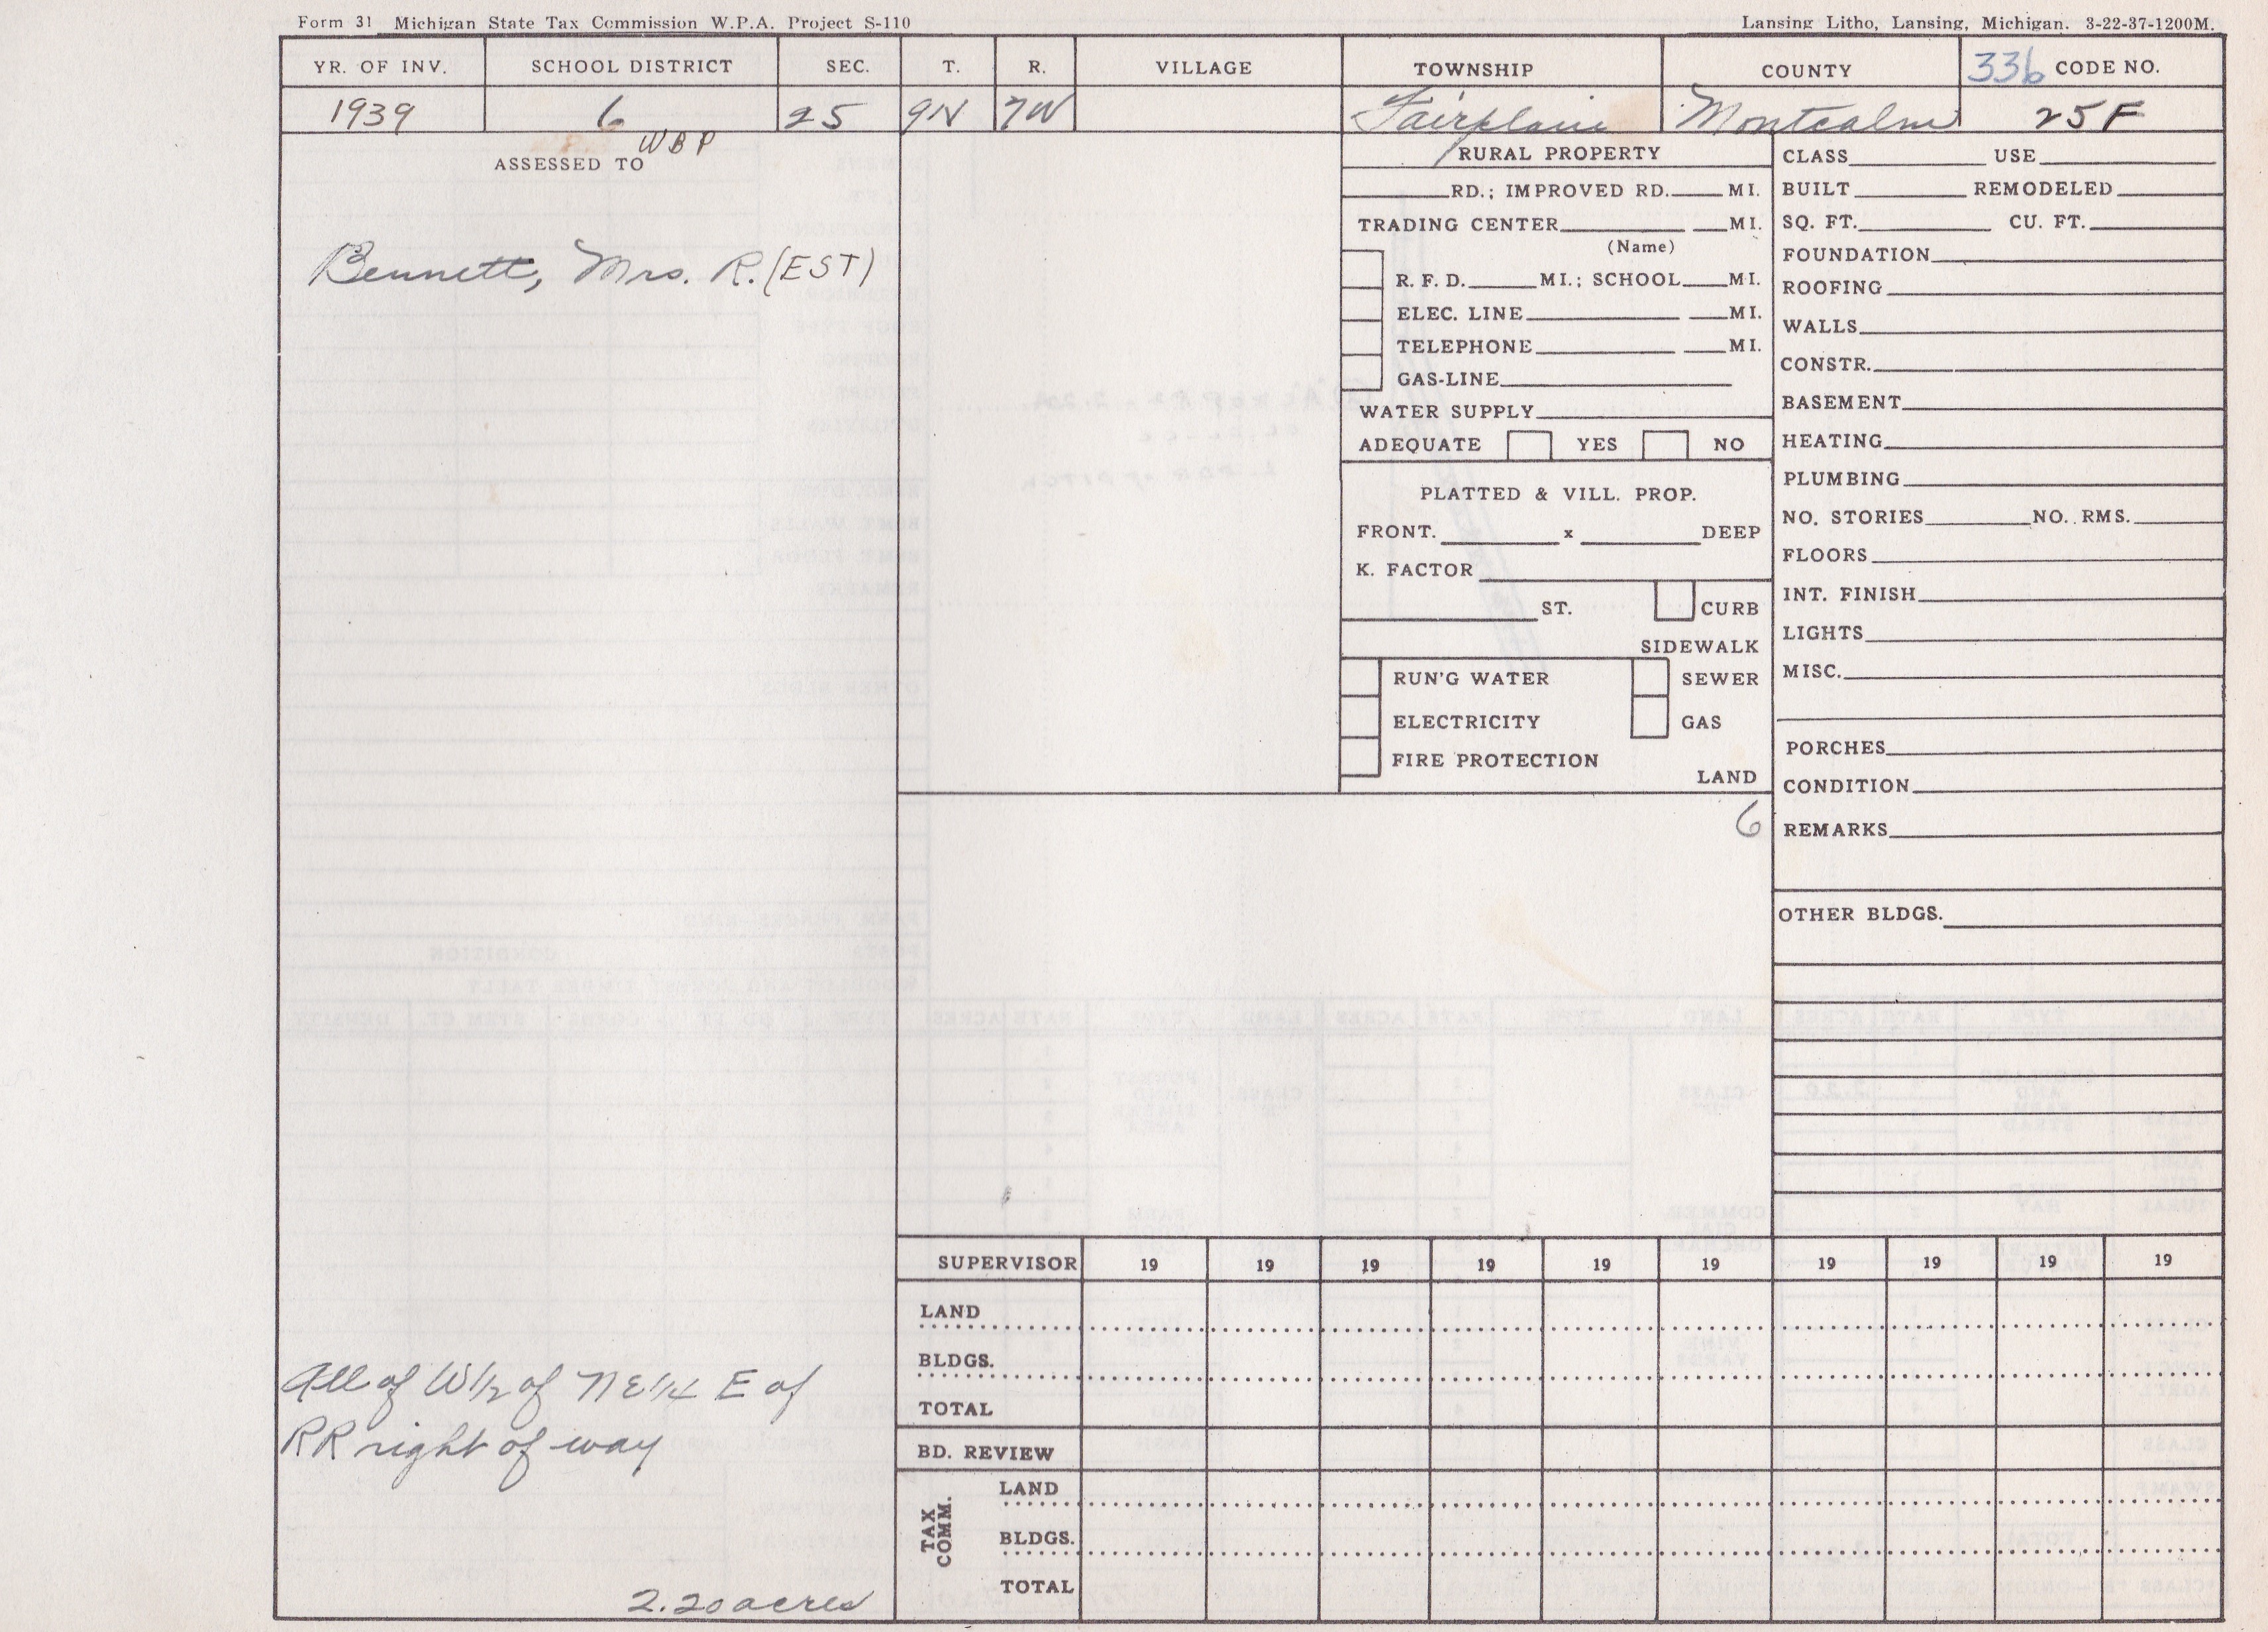 Form 31 Michigan State Tax Commission W.P.A. Project S-110
Lansing Litho, Lansing, Michigan. 3-22-37-1200M.
YR. OF INV. SCHOOL DISTRICT SEC. T. R. VILLAGE TOWNSHIP COUNTY 336 CODE NO.
1939 6 25 9N 7W Fairplain Montcalm 25F
WBP
ASSESSED TO
Bennett, Mrs. R. (EST)
All of W1/2 of NE1/4 E of
RR right of way
2.20 acres
RURAL PROPERTY
RD.; IMPROVED RD. MI.
TRADING CENTER MI.
(Name)
R. F. D. MI.; SCHOOL MI.
ELEC. LINE MI.
TELEPHONE MI.
GAS-LINE
WATER SUPPLY
ADEQUATE YES NO
PLATTED & VILL. PROP.
FRONT. x DEEP
K. FACTOR
ST. CURB
SIDEWALK
RUN'G WATER SEWER
ELECTRICITY GAS
FIRE PROTECTION
LAND
6
CLASS USE
BUILT REMODELED
SQ. FT. CU. FT.
FOUNDATION
ROOFING
WALLS
CONSTR.
BASEMENT
HEATING
PLUMBING
NO. STORIES NO. RMS.
FLOORS
INT. FINISH
LIGHTS
MISC.
PORCHES
CONDITION
REMARKS
OTHER BLDGS.
SUPERVISOR 19 19 19 19 19 19 19 19 19 19
LAND
BLDGS.
TOTAL
BD. REVIEW
TAX COMM.
LAND
BLDGS.
TOTAL